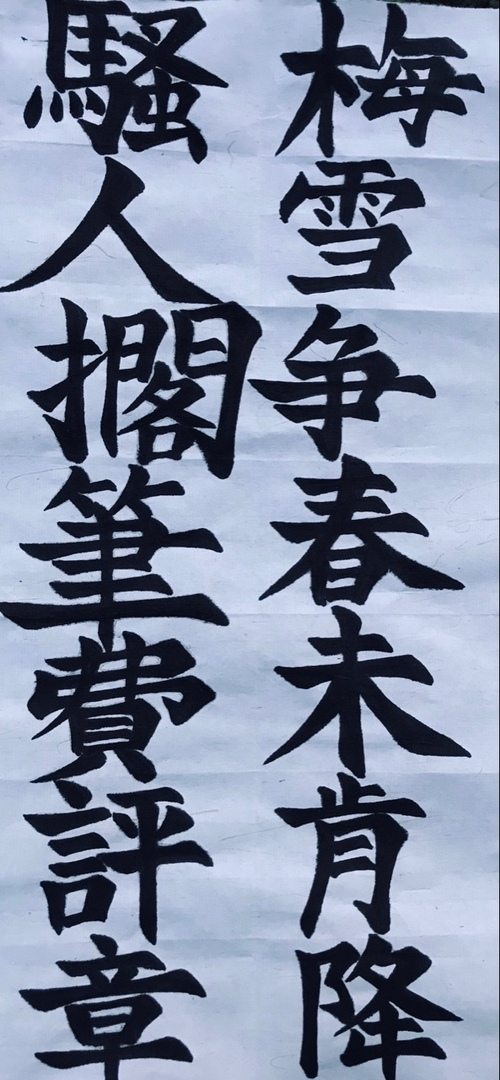 梅雪争春未肯降
騷人擱筆費評章